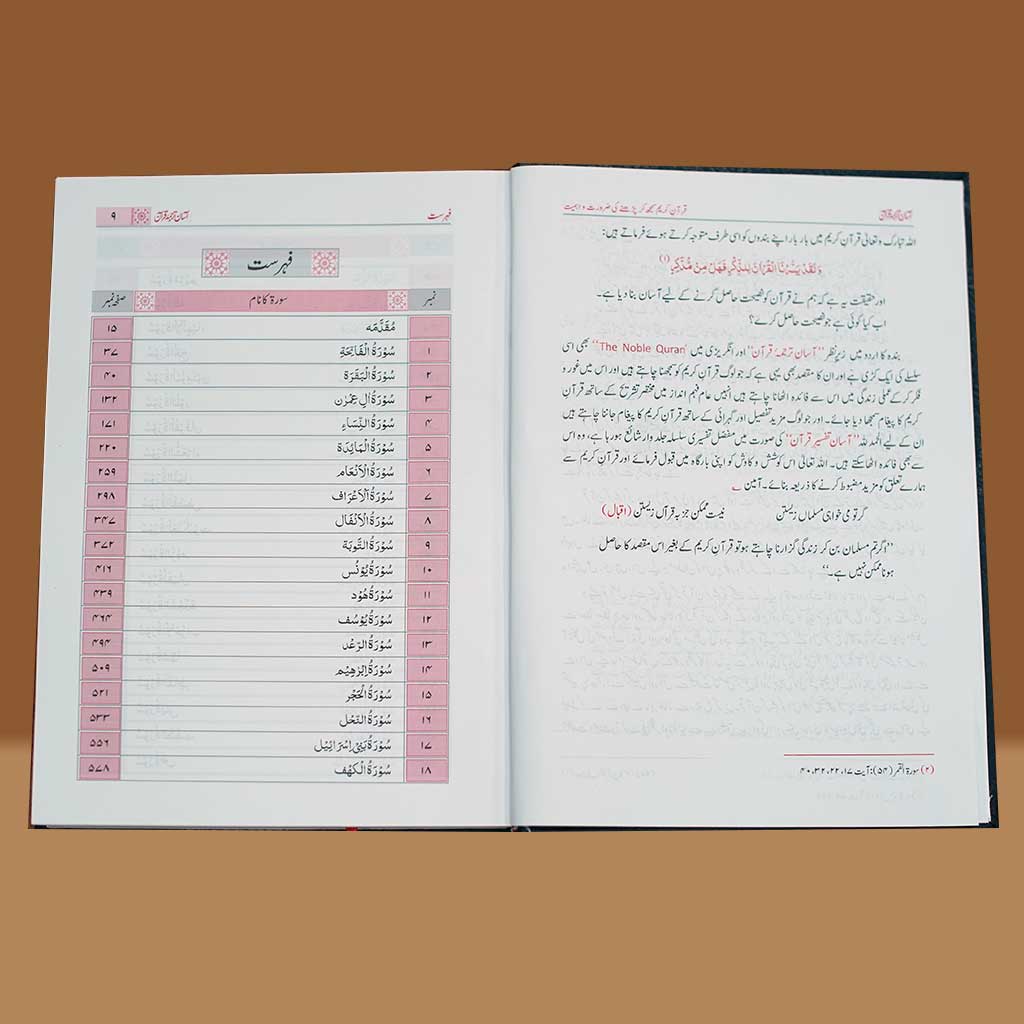 آسان ترجمۂ قرآن
قرآنِ کریم سمجھ کر پڑھنے کی ضرورت و اہمیت
اللہ تبارک و تعالیٰ قرآنِ کریم میں بار بار اپنے بندوں کو اسی طرف متوجہ کرتے ہوئے فرماتے ہیں:
وَلَقَدْ يَسَّرْنَا الْقُرْاٰنَ لِلذِّكْرِ فَهَلْ مِنْ مُّدَّكِرٍ (۱)
اور حقیقت یہ ہے کہ ہم نے قرآن کو نصیحت حاصل کرنے کے لیے آسان بنا دیا ہے۔
اب کیا کوئی ہے جو نصیحت حاصل کرے؟
بندہ کا اردو میں زیرِ نظر ’’آسان ترجمۂ قرآن‘‘ اور انگریزی میں ’’The Noble Quran‘‘ بھی اسی
سلسلے کی ایک کڑی ہے اور ان کا مقصد بھی یہی ہے کہ جو لوگ قرآنِ کریم کو سمجھنا چاہتے ہیں اور اس میں غور و
فکر کر کے عملی زندگی میں اس سے فائدہ اٹھانا چاہتے ہیں انہیں عام فہم انداز میں مختصر تشریح کے ساتھ قرآنِ
کریم کا پیغام سمجھا دیا جائے۔ اور جو لوگ مزید تفصیل اور گہرائی کے ساتھ قرآنِ کریم کا پیغام جاننا چاہتے ہیں
ان کے لیے الحمد للہ ’’آسان تفسیرِ قرآن‘‘ کی صورت میں مفصل تفسیری سلسلہ جلد وار شائع ہو رہا ہے، وہ اس
سے بھی فائدہ اٹھا سکتے ہیں۔ اللہ تعالیٰ اس کوشش و کاوش کو اپنی بارگاہ میں قبول فرمائے اور قرآنِ کریم سے
ہمارے تعلق کو مزید مضبوط کرنے کا ذریعہ بنائے۔ آمین
گر تو می خواہی مسلماں زیستن نیست ممکن جز بہ قرآں زیستن (اقبال)
’’اگر تم مسلمان بن کر زندگی گزارنا چاہتے ہو تو قرآنِ کریم کے بغیر اس مقصد کا حاصل
ہونا ممکن نہیں ہے۔‘‘
(۲) سورۃ القمر (۵۴): آیت ۱۷، ۲۲، ۳۲، ۴۰
فہرست آسان ترجمۂ قرآن ۹
فہرست
نمبر سورۃ کا نام صفحہ نمبر
مُقَدَّمَه ۱۵
۱ سُوْرَةُ الْفَاتِحَةِ ۳۷
۲ سُوْرَةُ الْبَقَرَةِ ۴۰
۳ سُوْرَةُ اٰلِ عِمْرٰن ۱۳۲
۴ سُوْرَةُ النِّسَاءِ ۱۷۱
۵ سُوْرَةُ الْمَائِدَة ۲۲۰
۶ سُوْرَةُ الْاَنْعَام ۲۵۹
۷ سُوْرَةُ الْاَعْرَاف ۲۹۸
۸ سُوْرَةُ الْاَنْفَال ۳۴۷
۹ سُوْرَةُ التَّوْبَة ۳۷۲
۱۰ سُوْرَةُ يُوْنُس ۴۱۶
۱۱ سُوْرَةُ هُوْد ۴۳۹
۱۲ سُوْرَةُ يُوْسُف ۴۶۴
۱۳ سُوْرَةُ الرَّعْد ۴۹۴
۱۴ سُوْرَةُ اِبْرٰهِيْم ۵۰۹
۱۵ سُوْرَةُ الْحَجْر ۵۲۱
۱۶ سُوْرَةُ النَّحْل ۵۳۳
۱۷ سُوْرَةُ بَنِيْ اِسْرَائِيْل ۵۵۶
۱۸ سُوْرَةُ الْكَهْف ۵۷۸